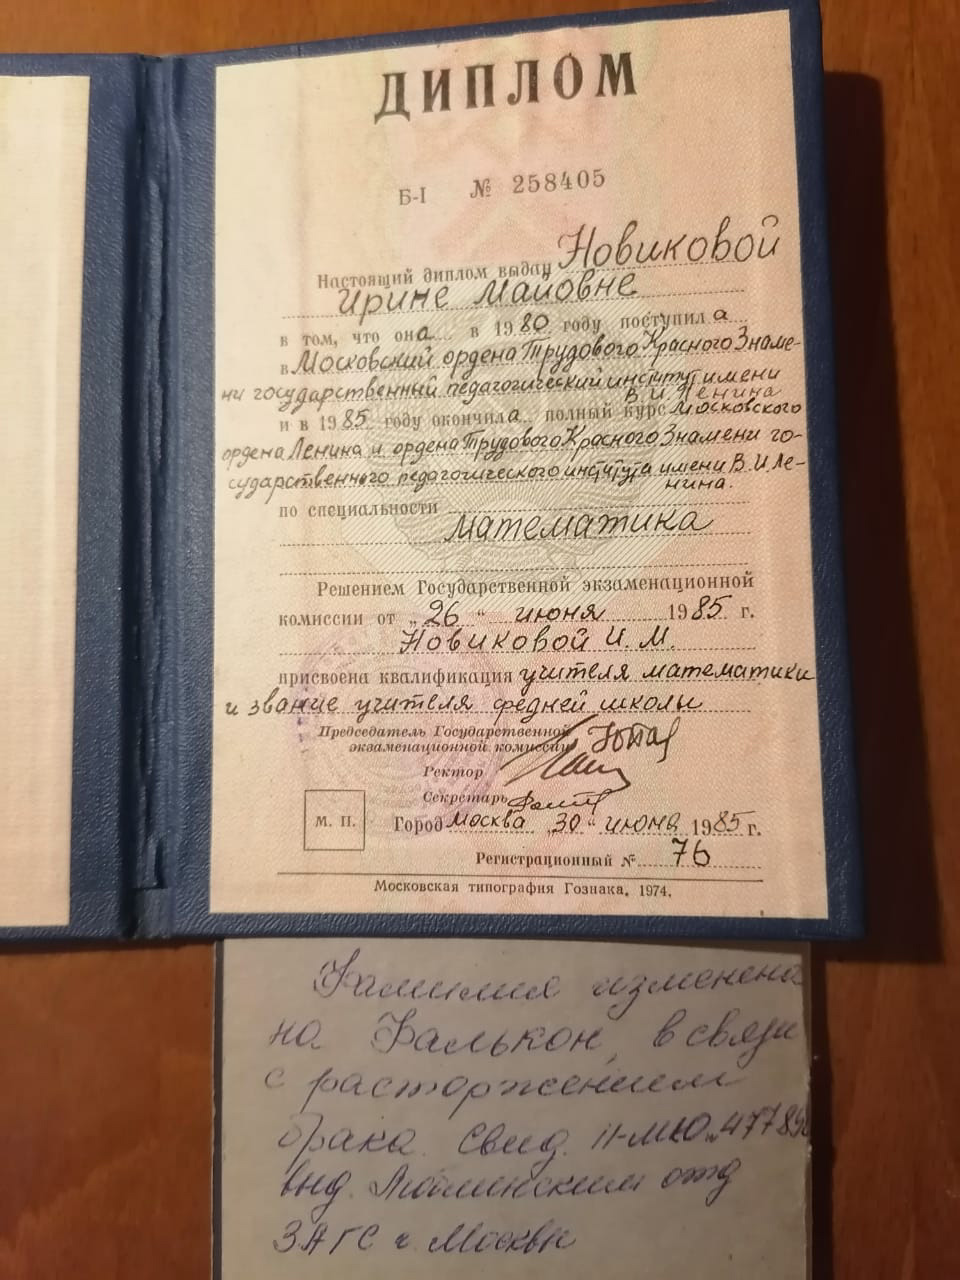 ДИПЛОМ
Б-I № 258405
Настоящий диплом выдан Новиковой
Ирине Майовне
в том, что она в 1980 году поступила
в Московский ордена Трудового Красного Знаме-
ни государственный педагогический институт имени
В.И. Ленина
и в 1985 году окончила полный курс Московского
ордена Ленина и ордена Трудового Красного Знамени го-
сударственного педагогического института имени В.И Ле-
нина.
по специальности
математика
Решением Государственной экзаменационной
комиссии от „26“ июня 1985 г.
Новиковой И. М.
присвоена квалификация учителя математики
и звание учителя средней школы
Председатель Государственной
экзаменационной комиссии
Ректор
Секретарь
М. П.
Город Москва „30“ июня 1985 г.
Регистрационный № 76
Московская типография Гознака. 1974.
Фамилия изменена
на Фалькон, в связи
с расторжением
брака. Свид. II-МЮ
выд. отд
ЗАГС г. Москвы